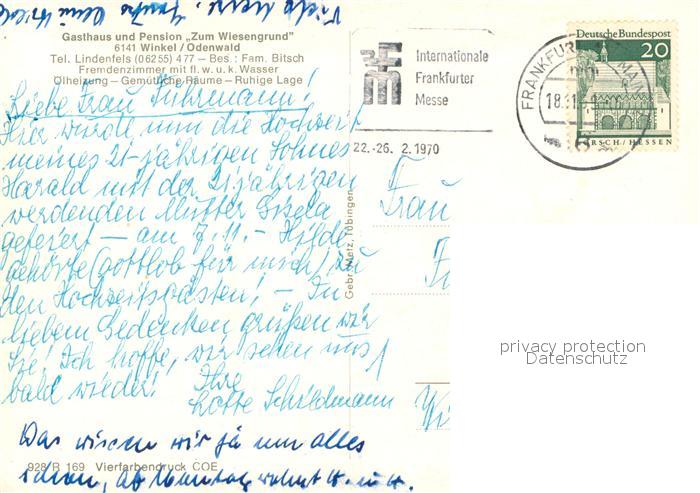 Gasthaus und Pension „Zum Wiesengrund"
6141 Winkel / Odenwald
Tel. Lindenfels (06255) 477 – Bes.: Fam. Bitsch
Fremdenzimmer mit fl. w. u. k. Wasser
Ölheizung – Gemütliche Räume – Ruhige Lage
Liebe Frau Fuhrmann!
Hier wurde nun die Hochzeit
meines 21-jährigen Sohnes
Harald mit der 21jährigen
werdenden Mutter Gisela
gefeiert – am 7.11. – Hilde
gehörte (gottlob für mich) zu
den Hochzeitsgästen! – In
liebem Gedenken grüßen wir
Sie! Ich hoffe, wir sehen uns
bald wieder! Ihre
Lotte Schildmann
Das wissen wir ja nun alles
schon, ab Montag
928 R 169 Vierfarbendruck COE
Gebr. Metz, Tübingen
Internationale
Frankfurter
Messe
22.-26. 2. 1970
FRANKFURT MAIN
18.11.
Deutsche Bundespost
20
LORSCH/HESSEN
Frau
privacy protection
Datenschutz